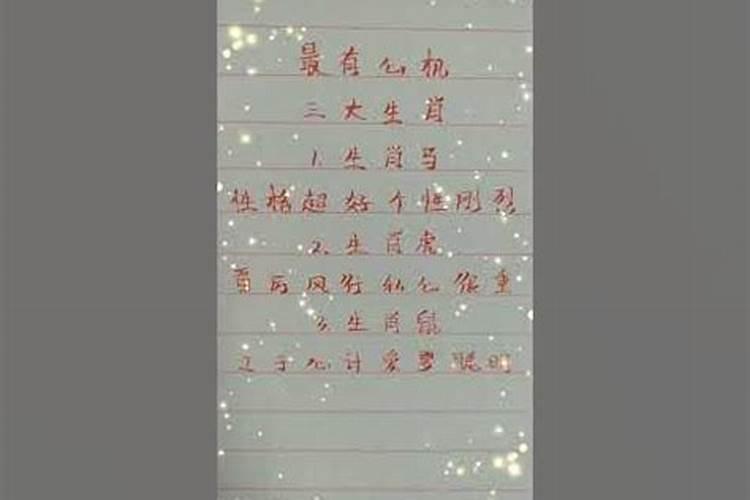 最有心机
三大生肖
1.生肖马
性格超好个性刚烈
2.生肖虎
雷厉风行私心很重
3.生肖鼠
工于心计爱耍聪明